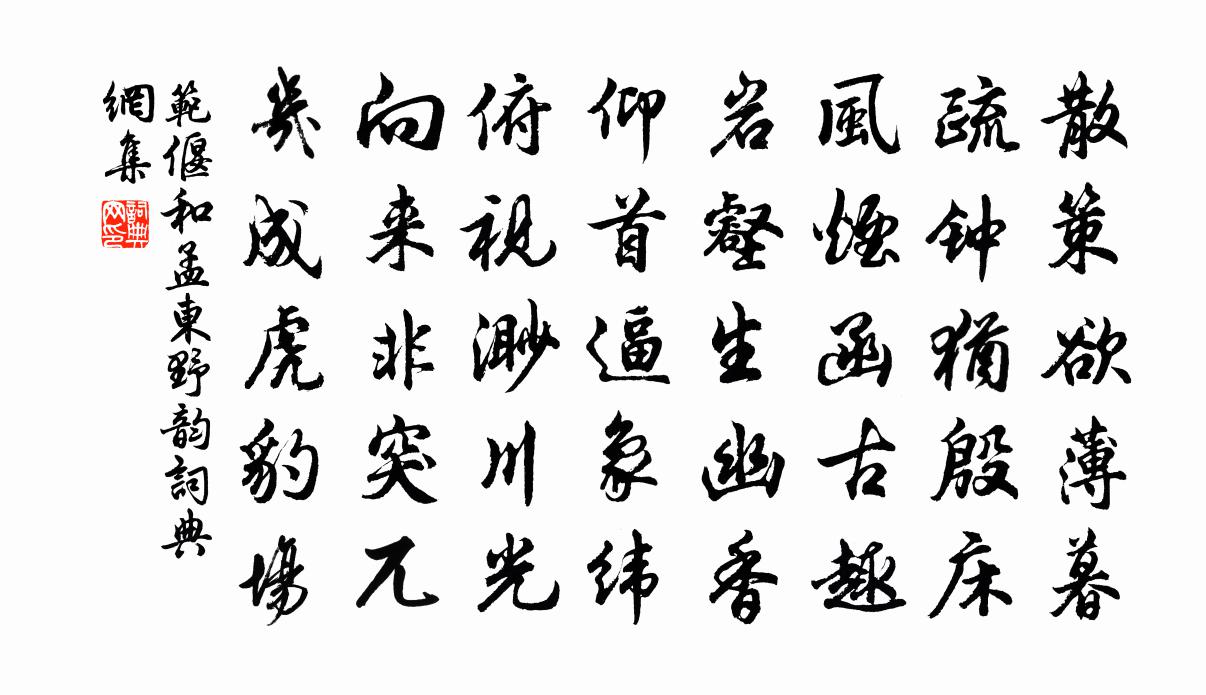 散策欲薄暮
疏钟犹殷床
風煙函古趣
岩壑生幽香
仰首逼象纬
俯視渺川光
向来非突兀
幾成虎豹場
範偃和孟東野韵詞典
網集
詞典网印